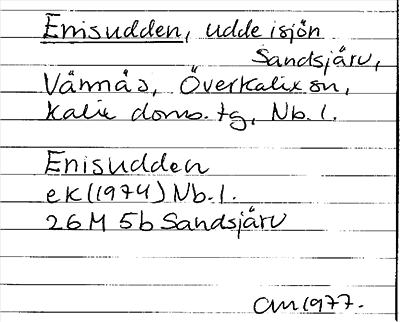 Enisudden, udde i sjön
Sandsjärv,
Vännäs, Överkalix sn,
Kalix doms.tg, Nb.l.
Enisudden
ek (1974) Nb.l.
26M 5b Sandsjärv
am 1977.